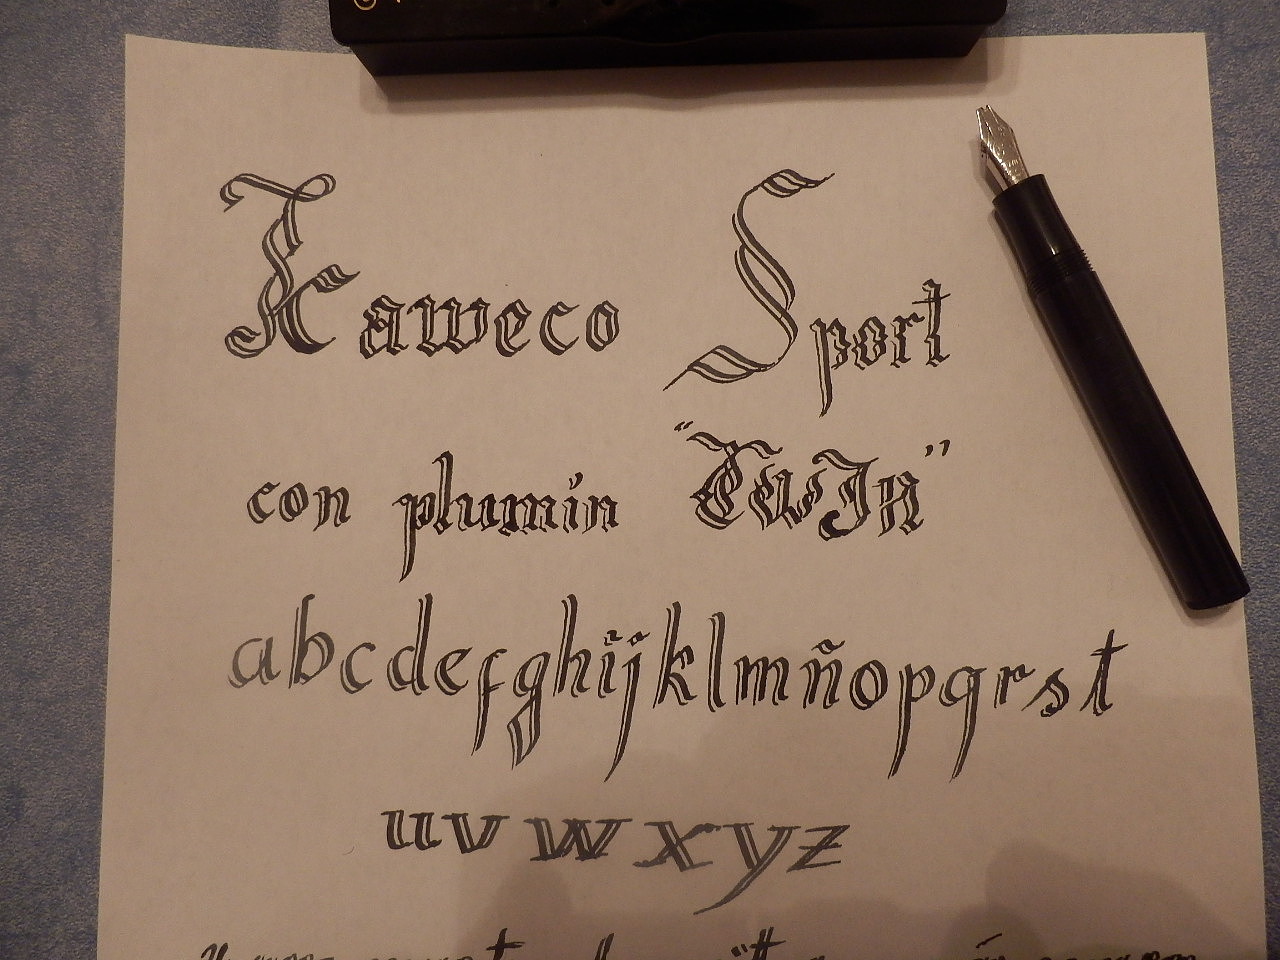 Kaweco Sport
con plumín "TWIn"
abcdefghijklmñopqrst
uvwxyz